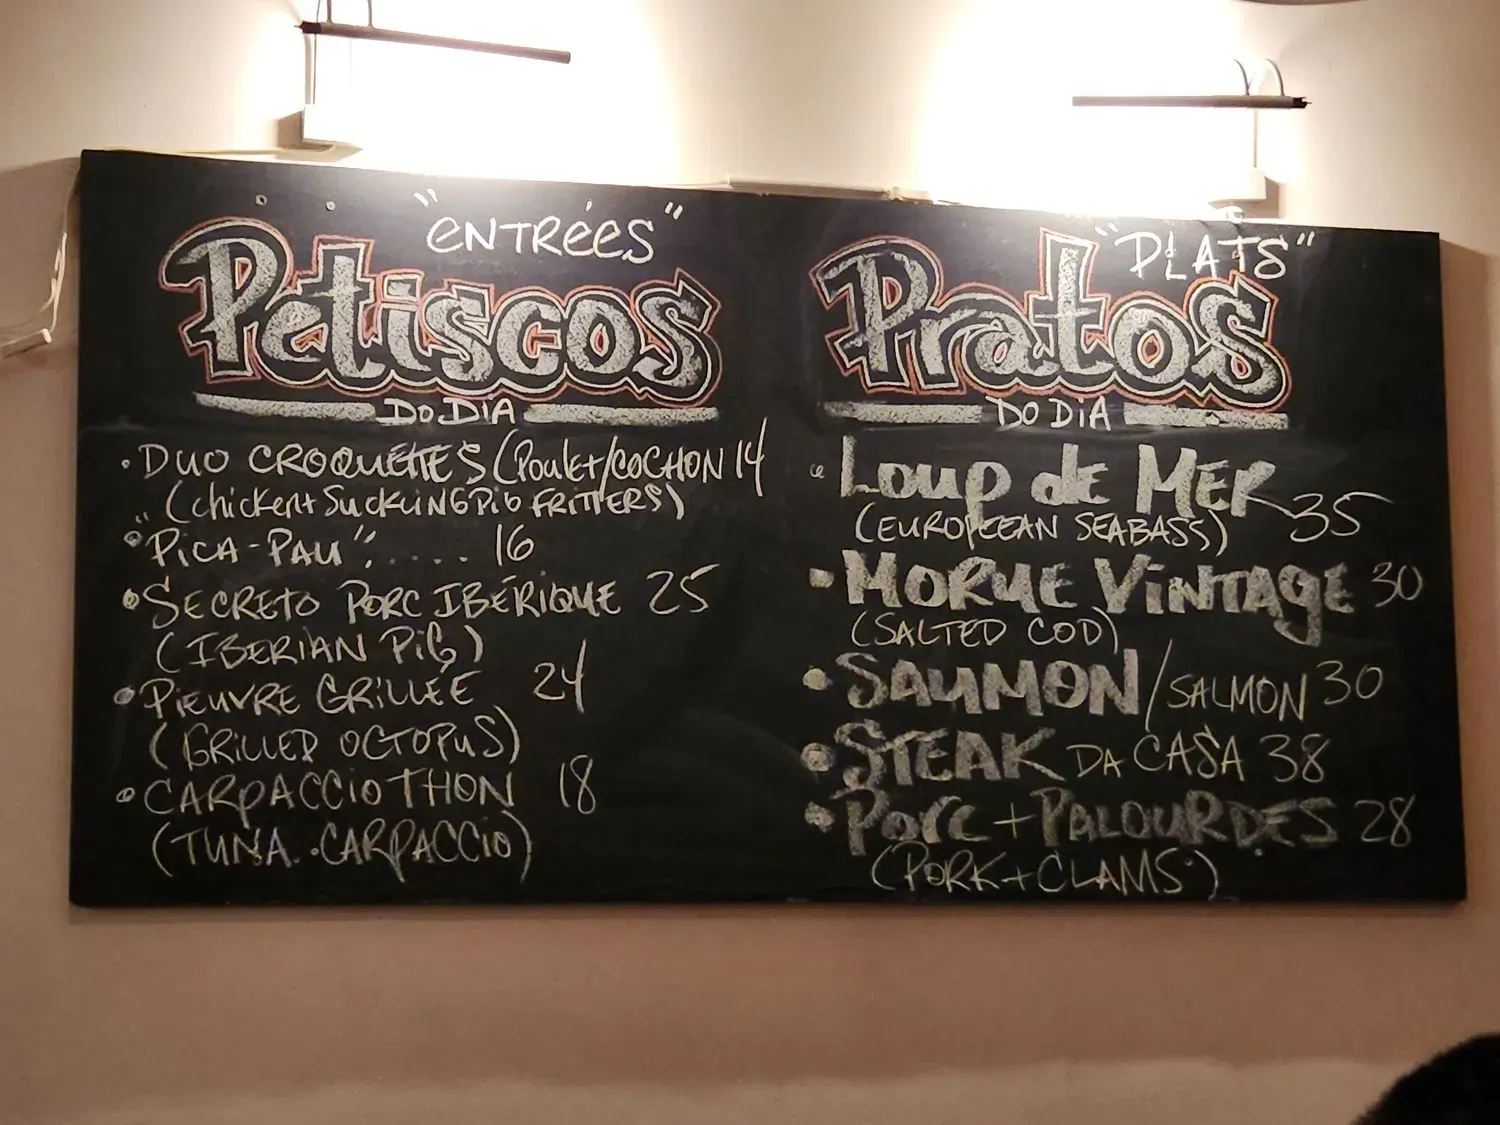 "ENTRÉES"
Petiscos
DO DIA
• DUO CROQUETTES (Poulet/COCHON 14
(chicken+SucklingPig FRITTERS)
• "PICA-PAU" . . . . 16
• SECRETO PORC IBÉRIQUE 25
(IBERIAN PIG)
• PIEUVRE GRILLÉE 24
(GRILLED OCTOPUS)
• CARPACCIO THON 18
(TUNA CARPACCIO)
"PLATS"
Pratos
DO DIA
• Loup de MER 35
(EUROPEEAN SEABASS)
• MORUE VINTAGE 30
(SALTED COD)
• SAUMON/SALMON 30
• STEAK DA CASA 38
• PORC + PALOURDES 28
(PORK+CLAMS)